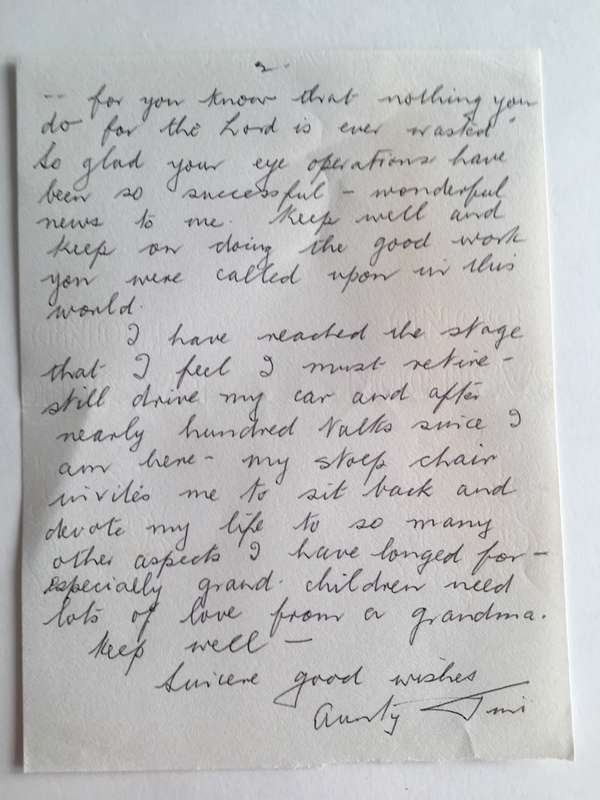 2.
-- for you know that nothing you
do for the Lord is ever wasted"
So glad your eye operations have
been so successful - wonderful
news to me. Keep well and
keep on doing the good work
you were called upon in this
world.
I have reached the stage
that I feel I must retire -
still drive my car and after
nearly hundred talks since I
am here - my stoep chair
invites me to sit back and
devote my life to so many
other aspects I have longed for -
especially grand. children need
lots of love from a grandma.
Keep well -
Sincere good wishes
Aunty